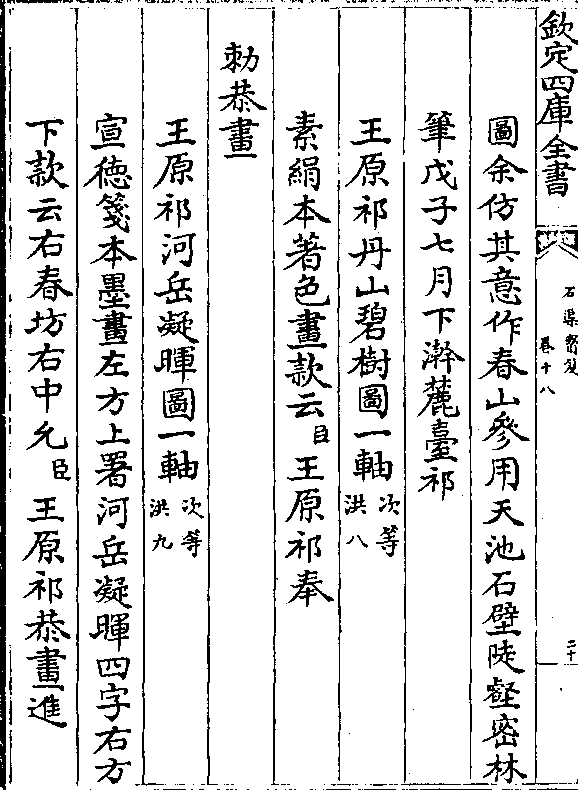 欽定四庫全書
石渠寳笈
卷十八
二十
圖余仿其意作春山參用天池石壁陡壑密林
筆戊子七月下澣麓臺祁
王原祁丹山碧樹圖一軸次等洪八
素絹本著色畫款云臣王原祁奉
勅恭畫
王原祁河岳凝暉圖一軸次等洪九
宣徳箋本墨畫左方上署河岳凝暉四字右方
下款云右春坊右中允臣王原祁恭畫進